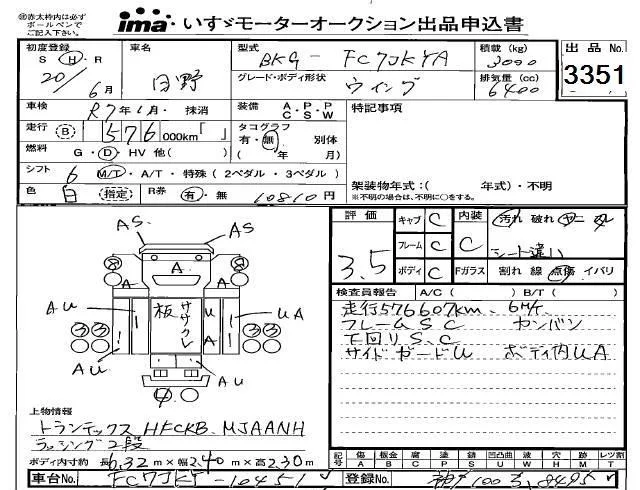 ㊟赤太枠内は必ず
ボールペンで
ご記入下さい。
ima いすゞモーターオークション出品申込書
初度登録 車名 型式 積載 (kg) 出品No
S H・R 20/6月 日野 BKG - FC7JKYA 3000 3351
グレード・ボディ形状 ウイング 排気量 (cc) 6400
車検 R7年1月・抹消 装備 A・P・P C・S・W 特記事項
走行 B 576 000km「 」 タコグラフ
燃料 G・D・HV 他( ) 有・無 別体 ( 年 月)
シフト 6 M/T・A/T・特殊 (2ペダル・3ペダル)
色 白 指定 R券 有・無 10810円
架装物年式:( 年式)・不明
※不明の場合は、不明に○をする。
評価 3.5 キャブ C 内装 C 汚れ 破れ
フレーム C シート違い
ボディ C Fガラス 割れ 線 点傷 イバリ
検査員報告 A/C ( ) B/T ( )
走行576607km、6MT
フレームS.C サンバン
下回りS.C
サイドガードU ボディ内UA
AS AS
A
A
AU 板 ササクレ U A UA
3 3 3 3
AU AU
上物情報
トランテックス HFCKB-MJAANH
ラッシング2段
ボディ内寸約 長6.32m×幅2.40m×高2.30m
記号 傷 板金 腐 塗 錆 凹凸曲 波 穴 跡 レツ割
A B C P S U W H M T
車台No. FC7JKY-10451 登録No.